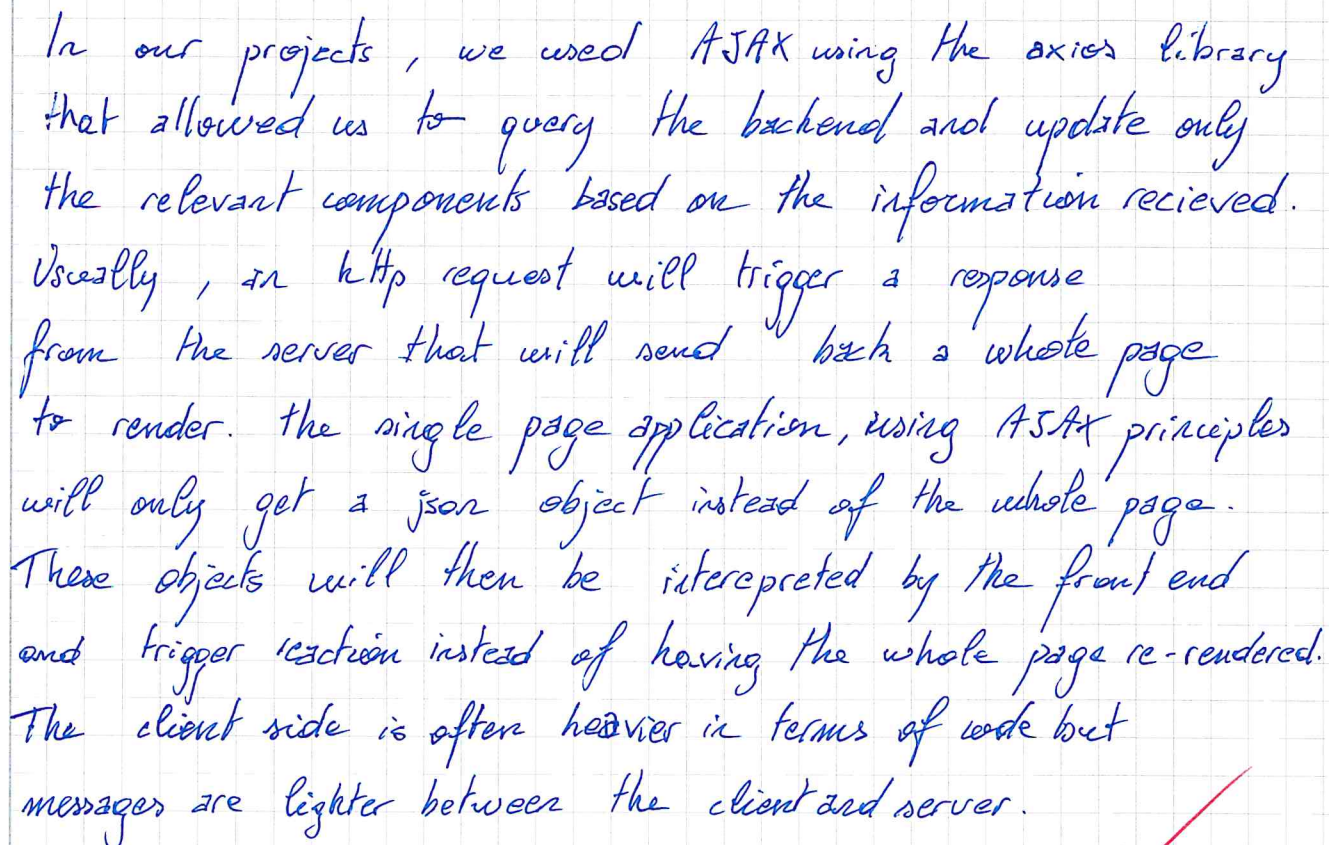 In our projects, we used AJAX using the axios library
that allowed us to query the backend and update only
the relevant components based on the information recieved.
Usually, an http request will trigger a response
from the server that will send back a whole page
to render. the single page application, using AJAX principles
will only get a json object instead of the whole page.
These objects will then be interepreted by the front end
and trigger reaction instead of having the whole page re-rendered.
The client side is often heavier in terms of code but
messages are lighter between the client and server.